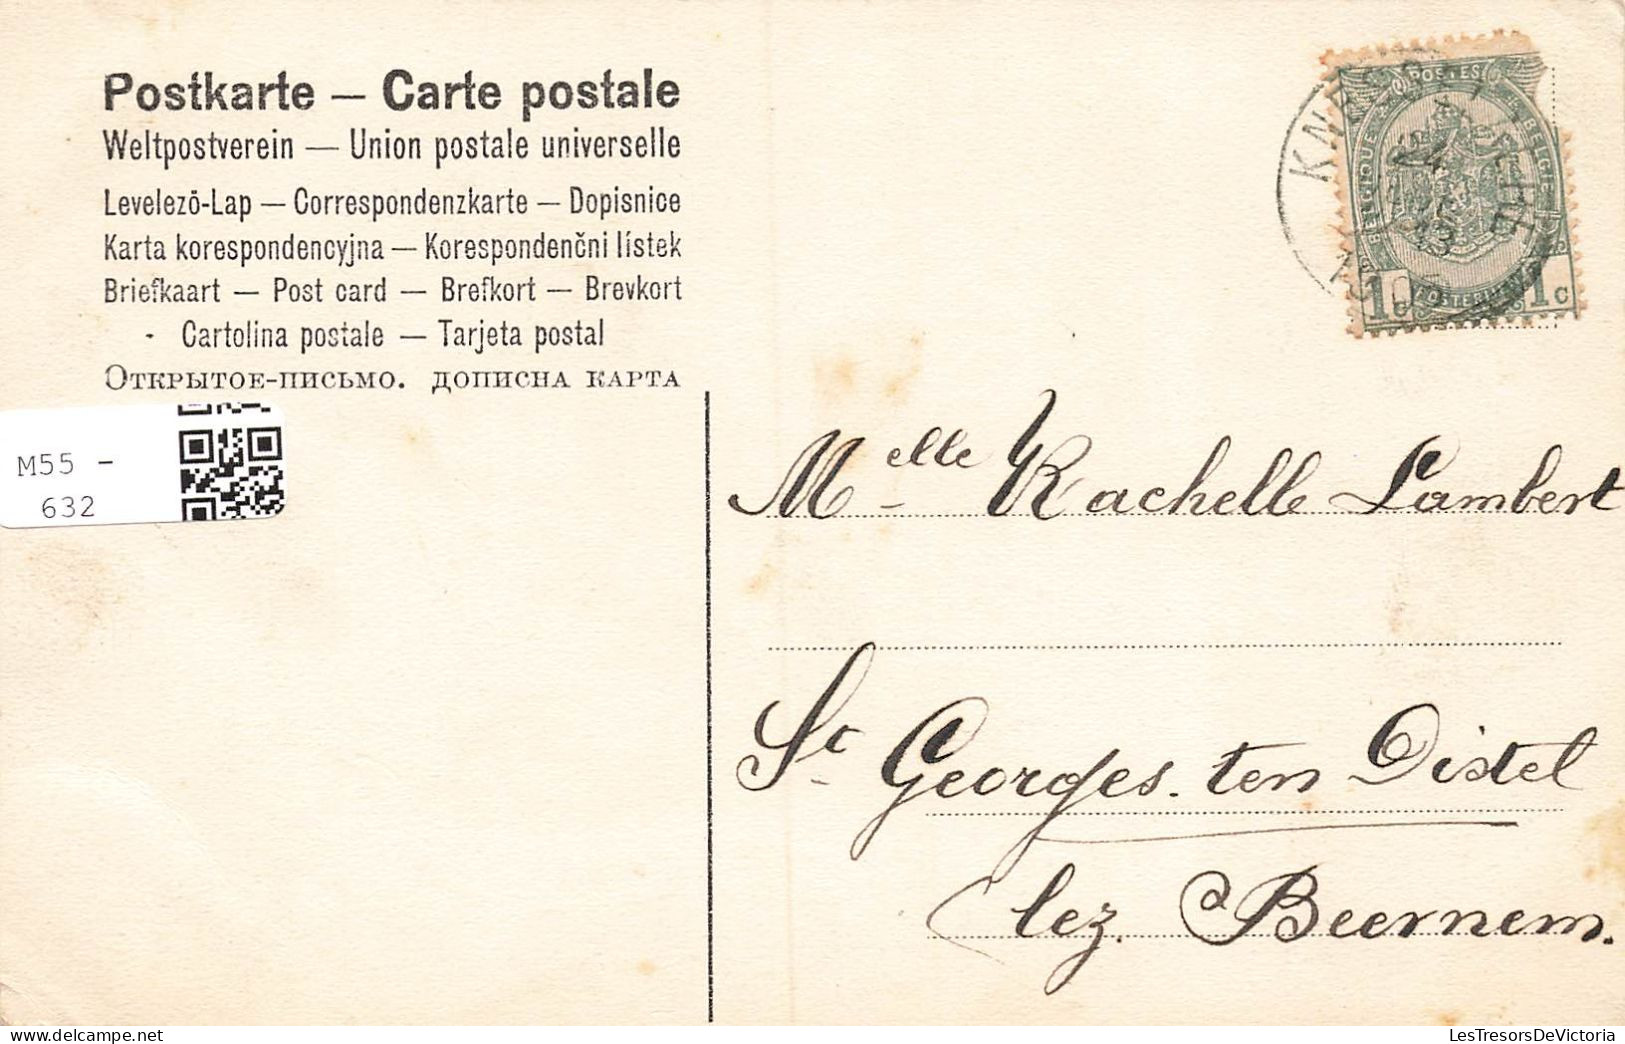 Postkarte — Carte postale
Weltpostverein — Union postale universelle
Levelezö-Lap — Correspondenzkarte — Dopisnice
Karta korespondencyjna — Korespondenčni lístek
Briefkaart — Post card — Brefkort — Brevkort
Cartolina postale — Tarjeta postal
Открытое-письмо. дописна карта
POSTES
BELGIQUE
BELGIE
1c 1c
24
13
M55 -
632
Melle Rachelle Lambert
St Georges. ten Distel
(lez. Beernem.
LesTresorsDeVictoria